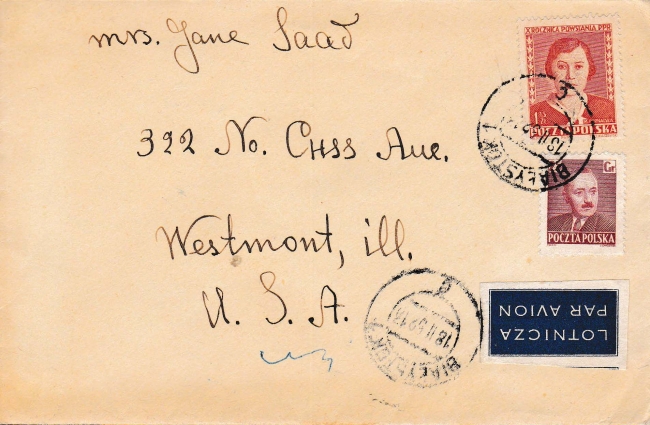 mrs. Jane Saad
322 No. CHSS Ave.
Westmont, ill.
U. S. A.
X ROCZNICA POWSTANIA PPR
POCZTA POLSKA
Gr
POCZTA POLSKA
BIAŁYSTOK
BIAŁYSTOK
LOTNICZA
PAR AVION